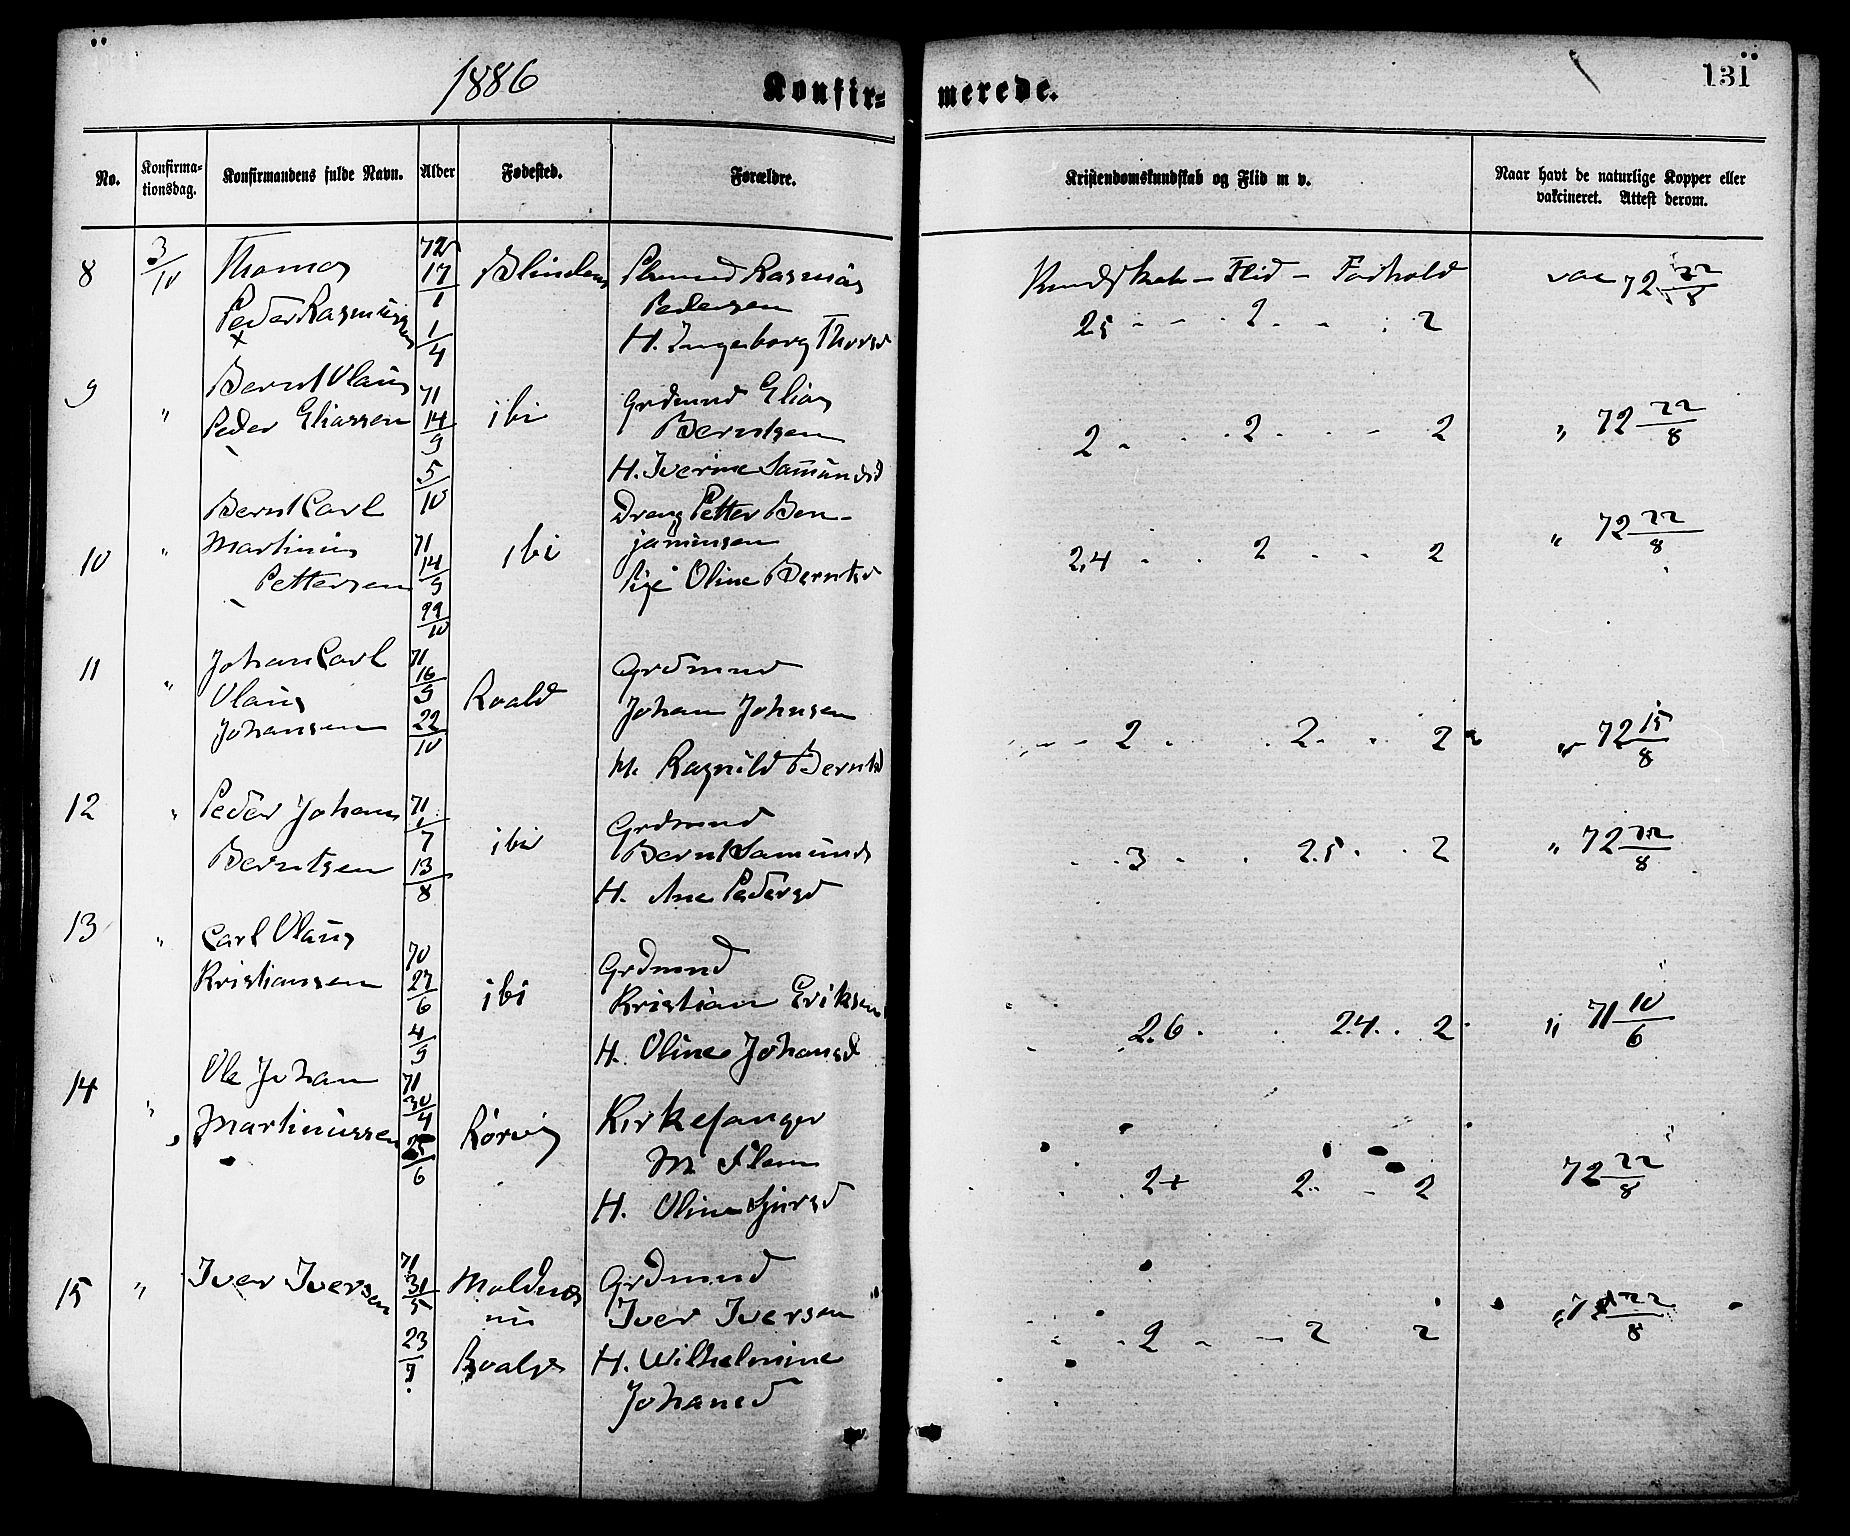 1886
Konfir= merede.
131
No.
Konfirma-
tionsdag.
Konfirmandens fulde Navn.
Alder
Fødested.
Forældre.
Kristendomskundskab og Flid m v.
Naar havt de naturlige Kopper eller
vakcineret. Attest derom.
8 3/10 Thomas
Peder Rasmussen
72 17/1
1/4
Rasmus
Pedersen
H. Ingeborg Thorsd
Kundskab - Flid - Forhold
25 - - 2 - - 2
vac 72 22/8
9 " Bernt Olaus
Peder Eliassen
71 14/9
5/10
ibi
Grdmand Elias
Berntsen
H. Iverine Samundsd
2 - 2 - 2
" 72 22/8
10 " Bernt Carl
Martinus
Pettersen
71 14/9
22/10
ibi
Dreng Petter Ben-
jaminsen
Pige Oline Berntsd
2,4 - 2 - 2
" 72 22/8
11 " Johan Carl
Olaus
Johansen
71 16/9
22/10
Roald
Grdmand
Johan Johnsen
H. Ragnild Berntsd
- - 2 - 2 - 2
" 72 15/8
12 " Peder Johan
Berntsen
71 1/7
13/8
ibi
Grdmand
Bernt Samunds
H. Ane Pedersd
3 - 2.5 - 2
" 72 22/8
13 " Carl Olaus
Kristiansen
70 27/6
4/9
ibi
Grdmand
Kristian Eriksen
H. Oline Johansd
2.6 . 2.4 . 2
" 71 10/6
14 " Ole Johan
Martinussen
71 30/4
25/6
Rørvig
Kirkesanger
M Flem
H. Oline Sjursd
2+ 2 - 2
72 22/8
15 " Iver Iversen
71 31/5
23/7
Moldnæs
nu
Roalds
Grdmand
Iver Iversen
H. Wilhelmine
Johansd
2 - - 2 2
" 72 22/8